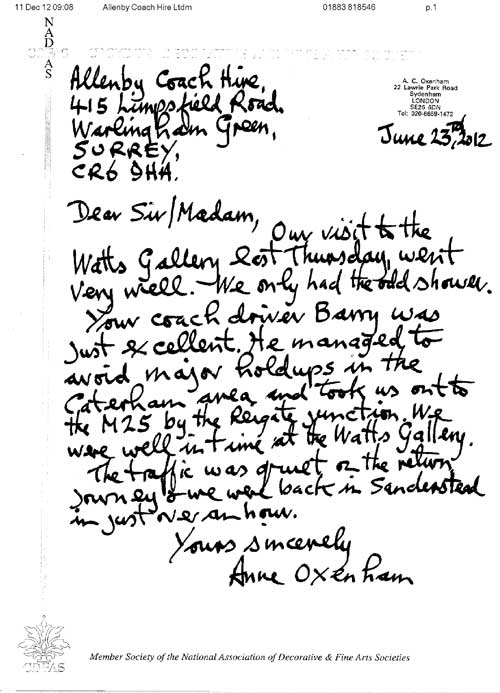 11 Dec 12 09:08 Allenby Coach Hire Ltdm 01883 818546 p.1
NADFAS
A. C. Oxenham
22 Lawrie Park Road
Sydenham
LONDON
SE26 6DN
Tel: 020-6659-1472
Allenby Coach Hire,
415 Limpsfield Road,
Warlingham Green,
SURREY,
CR6 9HA.
June 23rd, 2012
Dear Sir/Madam,
Our visit to the
Watts Gallery last Thursday, went
very well. We only had the odd shower.
Your coach driver Barry was
just excellent. He managed to
avoid major holdups in the
Caterham area and took us on to
the M25 by the Reigate junction. We
were well in time at the Watts Gallery.
The traffic was quiet on the return
journey & we were back in Sanderstead
in just over an hour.
Yours sincerely
Anne Oxenham
Member Society of the National Association of Decorative & Fine Arts Societies